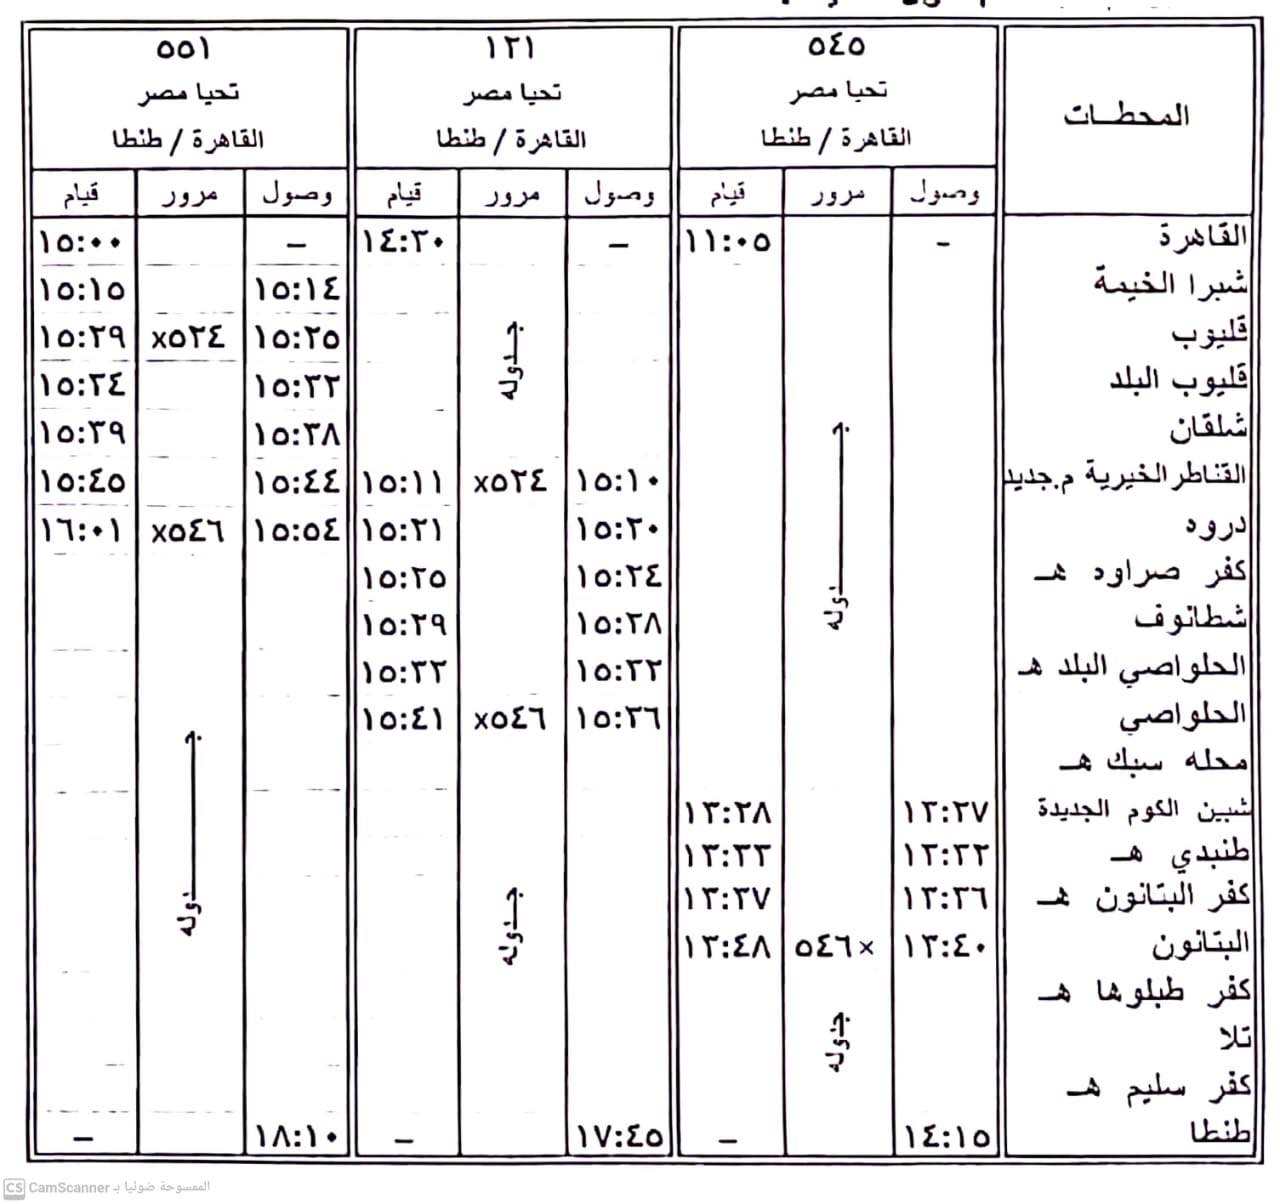 المحطات ٥٤٥ ١٢١ ٥٥١
تحيا مصر تحيا مصر تحيا مصر
القاهرة / طنطا القاهرة / طنطا القاهرة / طنطا
وصول مرور قيام وصول مرور قيام وصول مرور قيام
القاهرة - ١١:٠٥ - ١٤:٣٠ - ١٥:٠٠
شبرا الخيمة ١٥:١٤ ١٥:١٥
قليوب ١٥:٢٥ ٥٣٤x ١٥:٢٩
قليوب البلد ١٥:٣٣ ١٥:٣٤
شلقان ١٥:٣٨ ١٥:٣٩
القناطر الخيرية م.جديد ١٥:١٠ ٥٣٤x ١٥:١١ ١٥:٤٤ ١٥:٤٥
دروه ١٥:٢٠ ١٥:٢١ ١٥:٥٤ ٥٤٦x ١٦:٠١
كفر صراوه هـ ١٥:٢٤ ١٥:٢٥
شطانوف ١٥:٢٨ ١٥:٢٩
الحلواصي البلد هـ ١٥:٣٢ ١٥:٣٣
الحلواصي ١٥:٣٦ ٥٤٦x ١٥:٤١
محله سبك هـ
شبين الكوم الجديدة ١٣:٢٧ ١٣:٢٨
طنبدي هـ ١٣:٣٢ ١٣:٣٣
كفر البتانون هـ ١٣:٣٦ ١٣:٣٧
البتانون ١٣:٤٠ ×٥٤٦ ١٣:٤٨
كفر طبلوها هـ
تلا
كفر سليم هـ
طنطا ١٤:١٥ - ١٧:٤٥ - ١٨:١٠ -
جدوله
جدوله
جدوله
جدوله
جدوله
CS CamScanner الممسوحة ضوئيا بـ